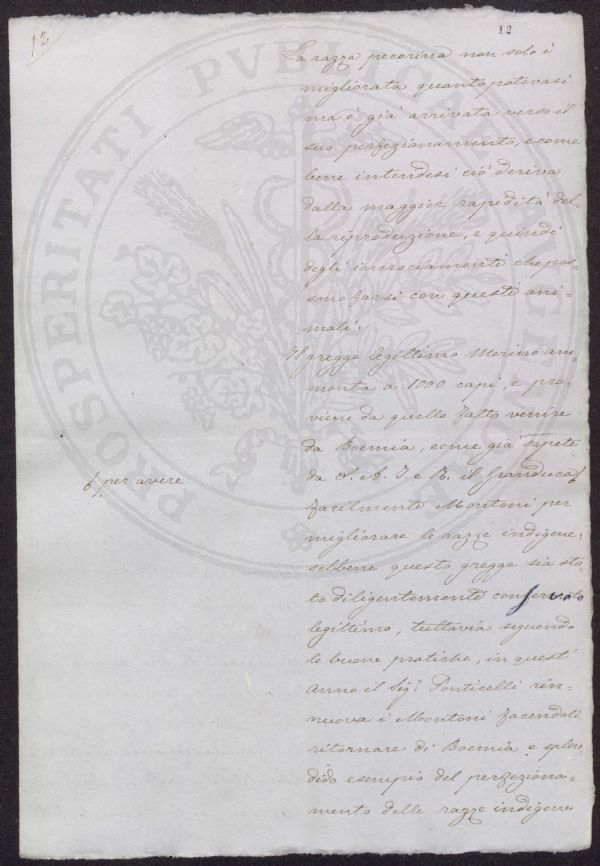 12
12
La razza pecorina non solo è
migliorata quanto potevasi
ma è già arrivata verso il
suo perfezionamento, e come
bene intendesi ciò deriva
dalla maggior rapidità del-
la riproduzione, e quindi
degli incrociamenti che pos-
sono farsi con questi ani-
mali.
Il gregge legittimo Merino am-
monta a 1000 capi, e pro-
viene da quello fatto venire
da Boemia, come già sapete
da S. A. I. e R. il Granduca
per avere
facilmente Montoni per
migliorare le razze indigene;
sebbene questo gregge sia sta-
to diligentemente conservato
legittimo, tuttavia seguendo
le buone pratiche, in quest'
anno il Sigr Ponticelli rin-
nuova i Montoni facendoli
ritornare di Boemia e splen-
dido esempio del perfeziona-
mento delle razze indigene
PROSPERITATI PVBLICAE AVGENDAE